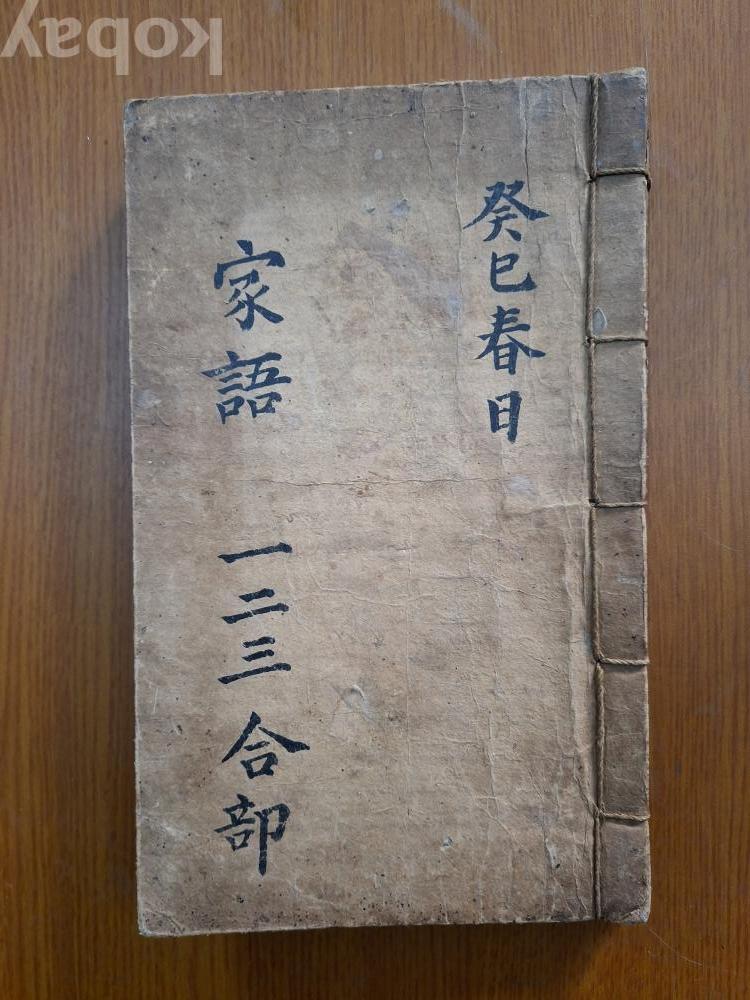 kobay
癸巳春日
家語 一二三合部